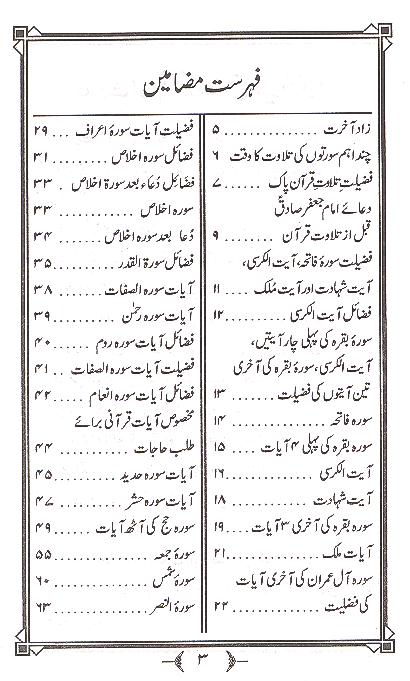 فہرست مضامین
زاد آخرت ............ ۵
چند اہم سورتوں کی تلاوت کا وقت ۶
فضیلت تلاوت قرآن پاک ...... ۷
دعائے امام جعفر صادقؑ
قبل از تلاوت قرآن ........ ۹
فضیلت سورۂ فاتحہ، آیت الکرسی،
آیت شہادت اور آیت مُلک ..... ۱۱
فضائل آیت الکرسی ......... ۱۲
سورۂ بقرہ کی پہلی چار آیتیں،
آیت الکرسی، سورۂ بقرہ کی آخری
تین آیتوں کی فضیلت ....... ۱۳
سورہ فاتحہ ............. ۱۴
سورہ بقرہ کی پہلی ۴ آیات ... ۱۵
آیت الکرسی ............ ۱۶
آیت شہادت ............ ۱۸
سورہ بقرہ کی آخری ۳ آیات ... ۱۹
آیات ملک .............. ۲۱
سورہ آل عمران کی آخری آیات
کی فضلیت ............. ۲۲
فضیلت آیات سورۂ اعراف ... ۲۹
فضائل سورہ اخلاص ........ ۳۱
فضائل دُعاء بعد سورۃ اخلاص . ۳۳
سورہ اخلاص ............ ۳۳
دُعا بعد سورہ اخلاص ....... ۳۴
فضائل سورۃ القدر ......... ۳۵
آیات سورہ الصفات ....... ۳۸
آیات سورہ رحمٰن .......... ۳۹
فضائل آیات سورہ روم ..... ۴۰
فضیلت آیات سورہ الصفات .. ۴۱
فضائل آیات سورہ انعام .... ۴۲
مخصوص آیات قرآنی برائے
طلب حاجات ............ ۴۴
آیات سورہ حدید ......... ۴۵
آیات سورہ حشر .......... ۴۷
سورہ حج کی آٹھ آیات ..... ۴۹
سورۂ جمعہ ............. ۵۵
سورۂ شمس ............. ۶۰
سورۃ النصر ............ ۶۳
۳